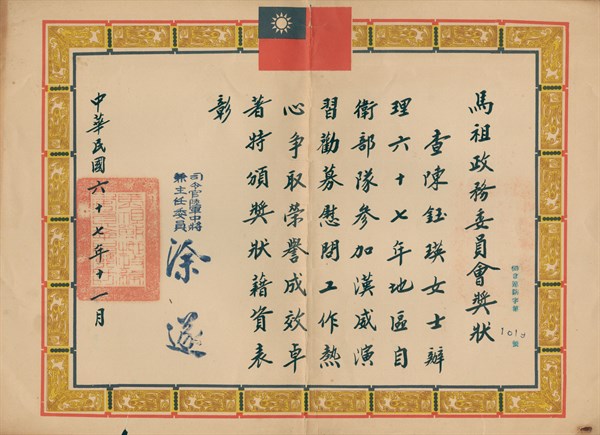 馬祖政務委員會獎狀
查陳鈺瑛女士辦
理六十七年地區自
衛部隊參加漢威演
習勸募慰問工作熱
心爭取榮譽成效卓
著特頒獎狀藉資表
彰
司令官陸軍中將
兼主任委員
中華民國六十七年十一月